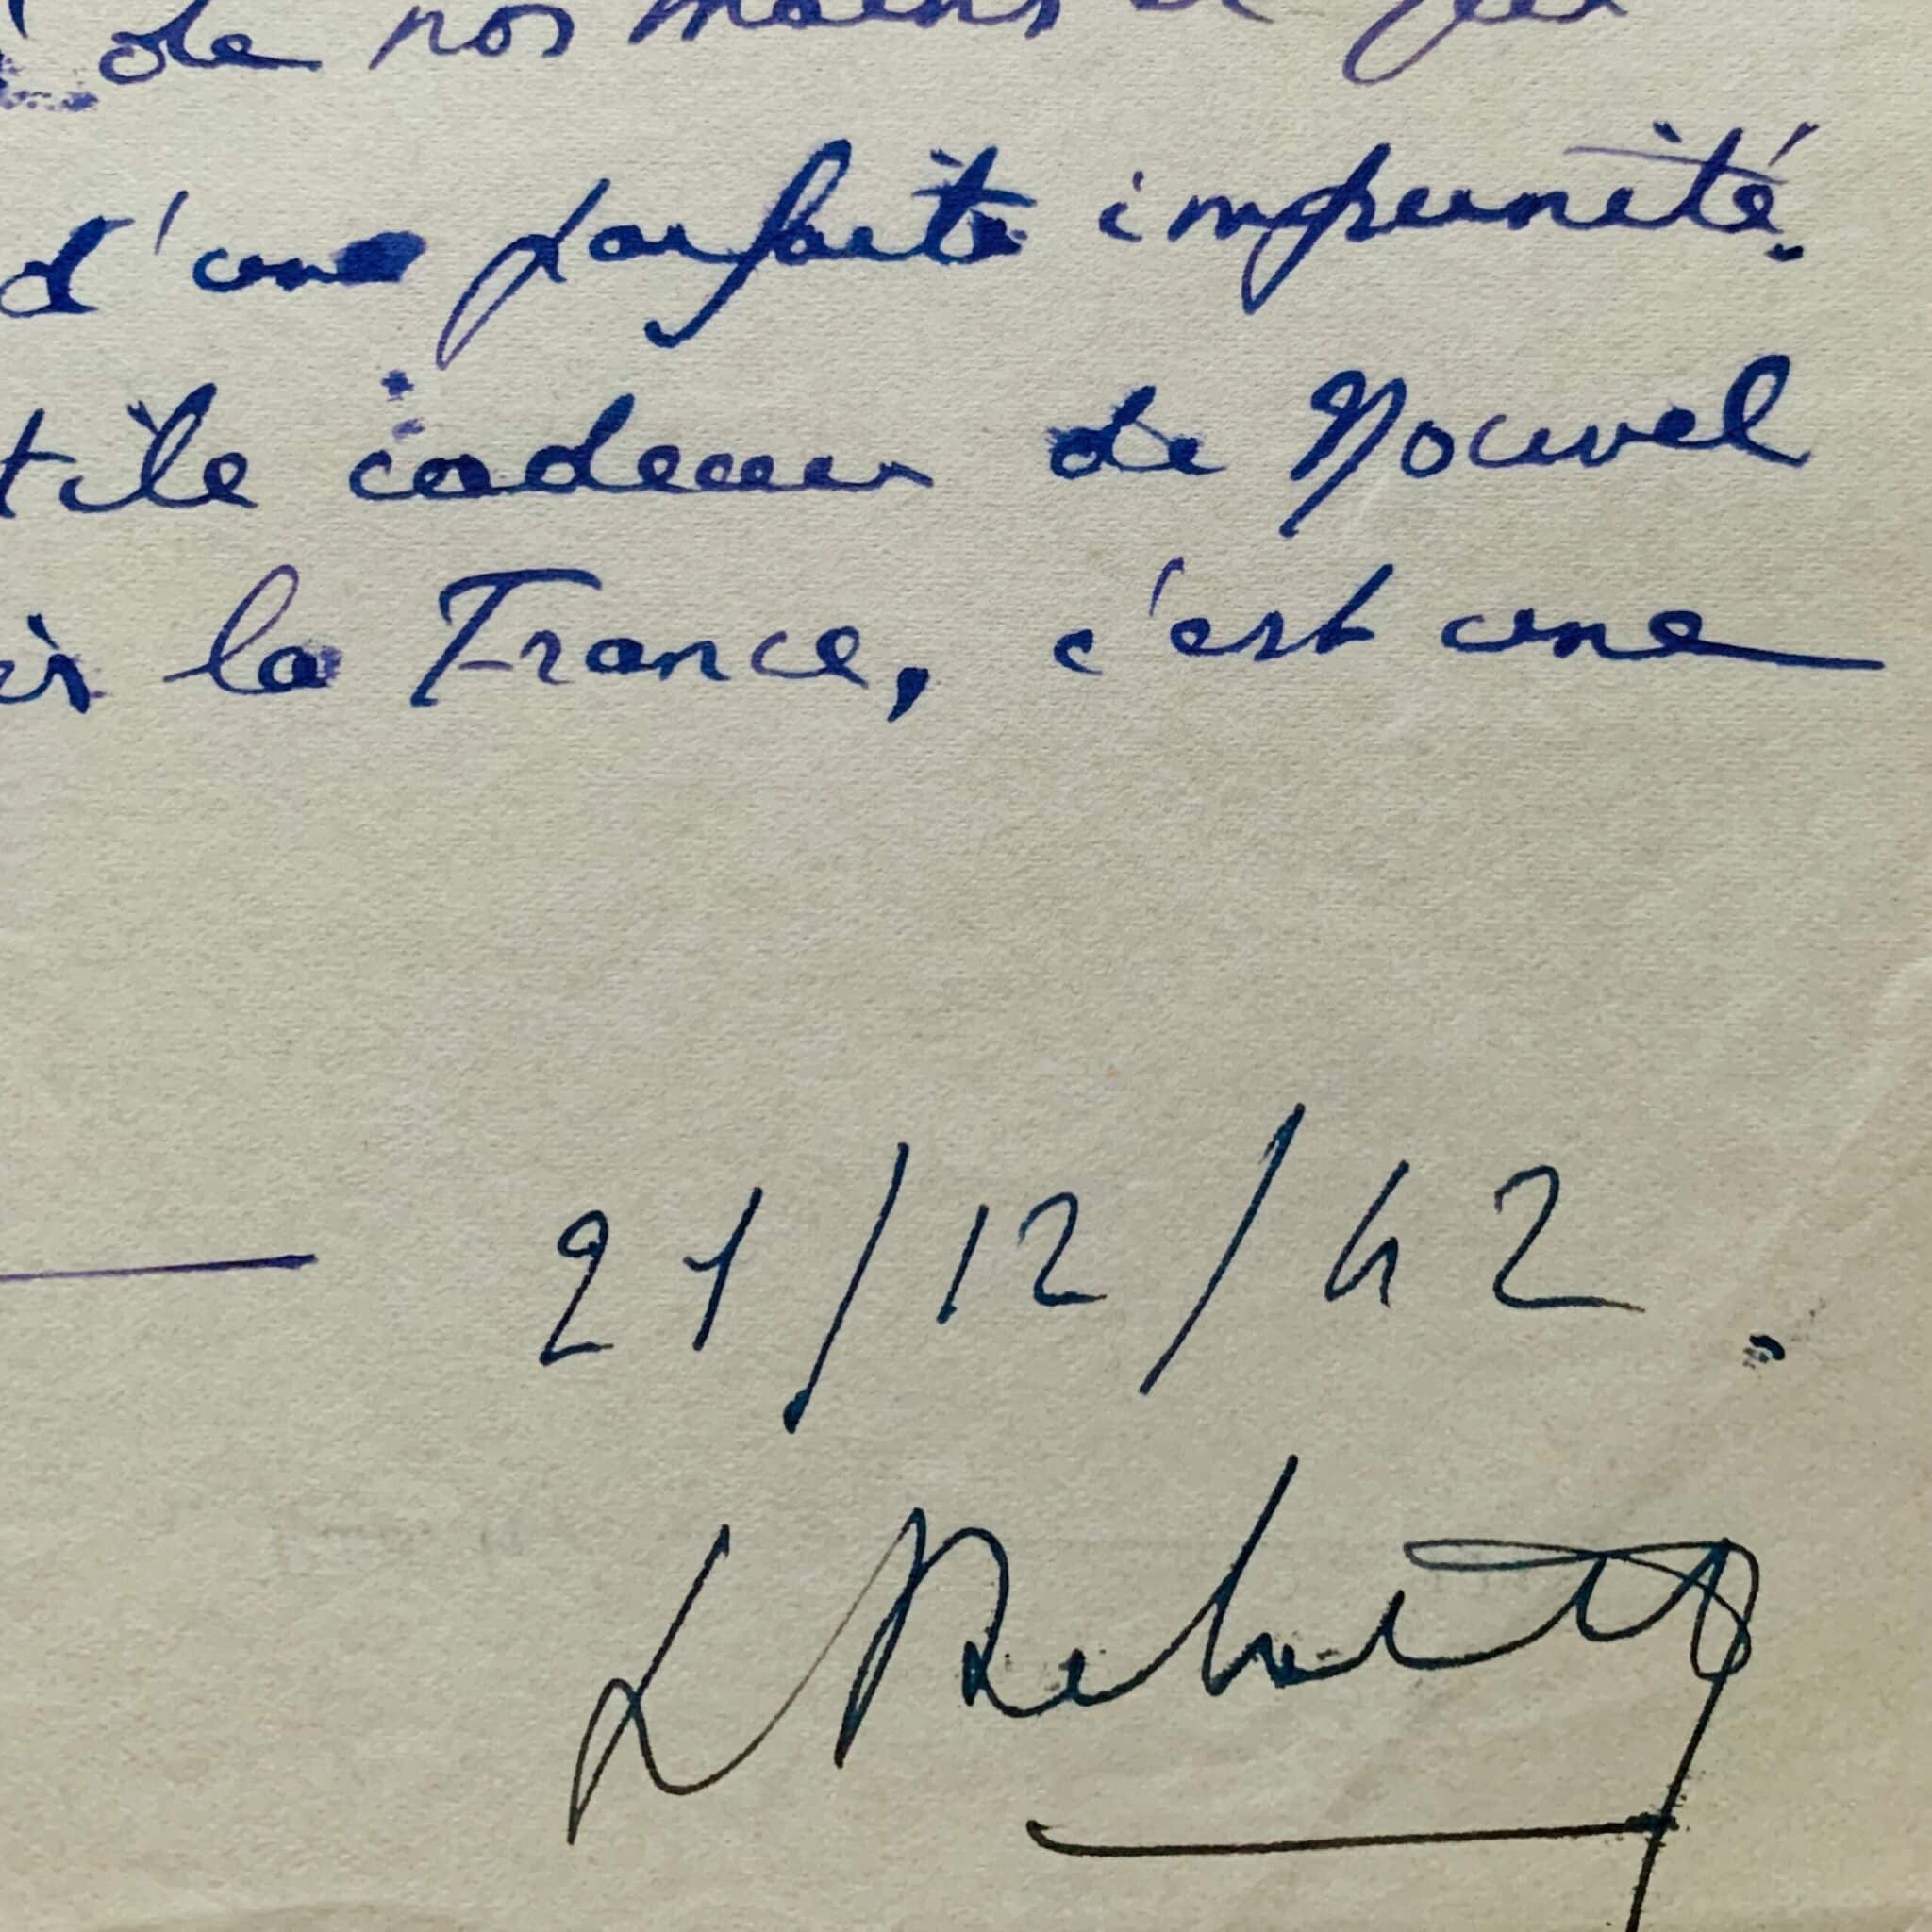 de nos mains et qui
d'une parfaite impunité.
t-il le cadeau de Nouvel
la France, c'est une
21/12/42.